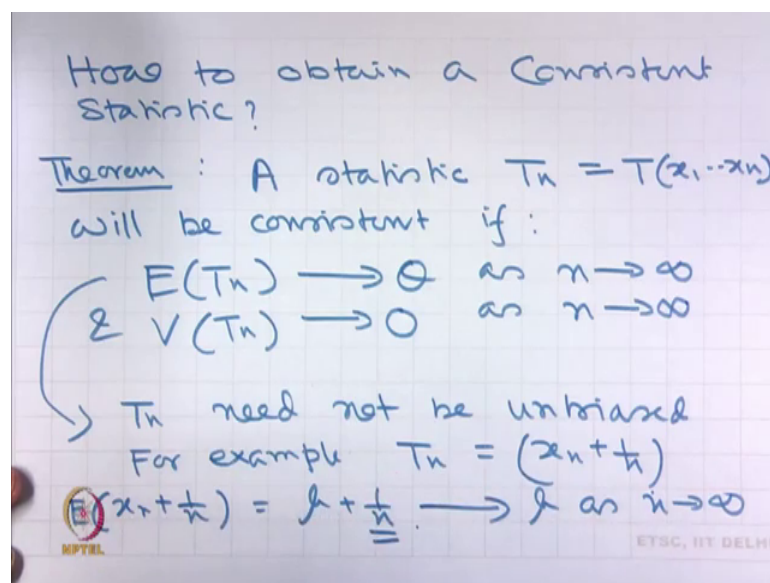 How to obtain a Consistent
Statistic?
Theorem : A statistic Tn = T(x1, ..xn)
will be consistent if :
E(Tn) ⟶ θ as n ⟶ ∞
& V(Tn) ⟶ 0 as n ⟶ ∞
Tn need not be unbiased
For example Tn = (xn + 1/n)
E(xn + 1/n) = μ + 1/n ⟶ μ as n → ∞
NPTEL
ETSC, IIT DELHI